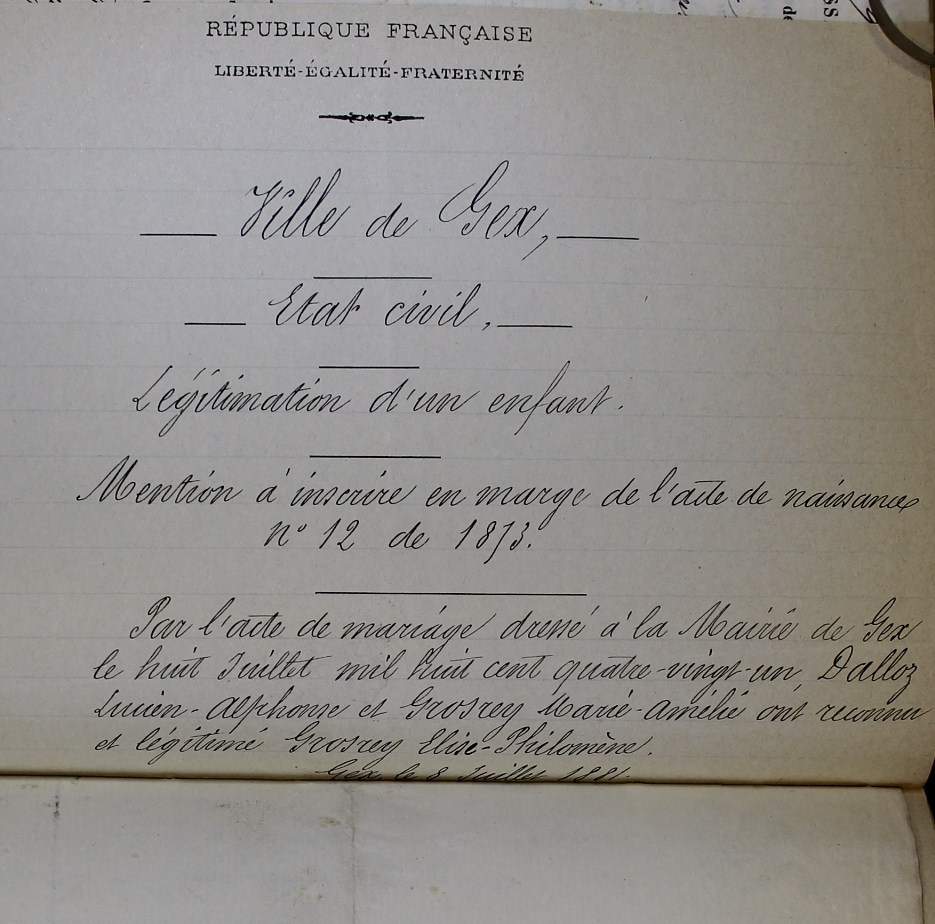 RÉPUBLIQUE FRANÇAISE
LIBERTÉ-ÉGALITÉ-FRATERNITÉ
Ville de Gex,
Etat civil,
Légitimation d'un enfant.
Mention à inscrire en marge de l'acte de naissance
n° 12 de 1873.
Par l'acte de mariage dressé à la Mairie de Gex
le huit Juillet mil huit cent quatre-vingt-un, Dalloz
Lucien-Alphonse et Grosrey Marie-Amélie ont reconnu
et légitimé Grosrey Elise-Philomène.
Gex, le 8 Juillet 1881.